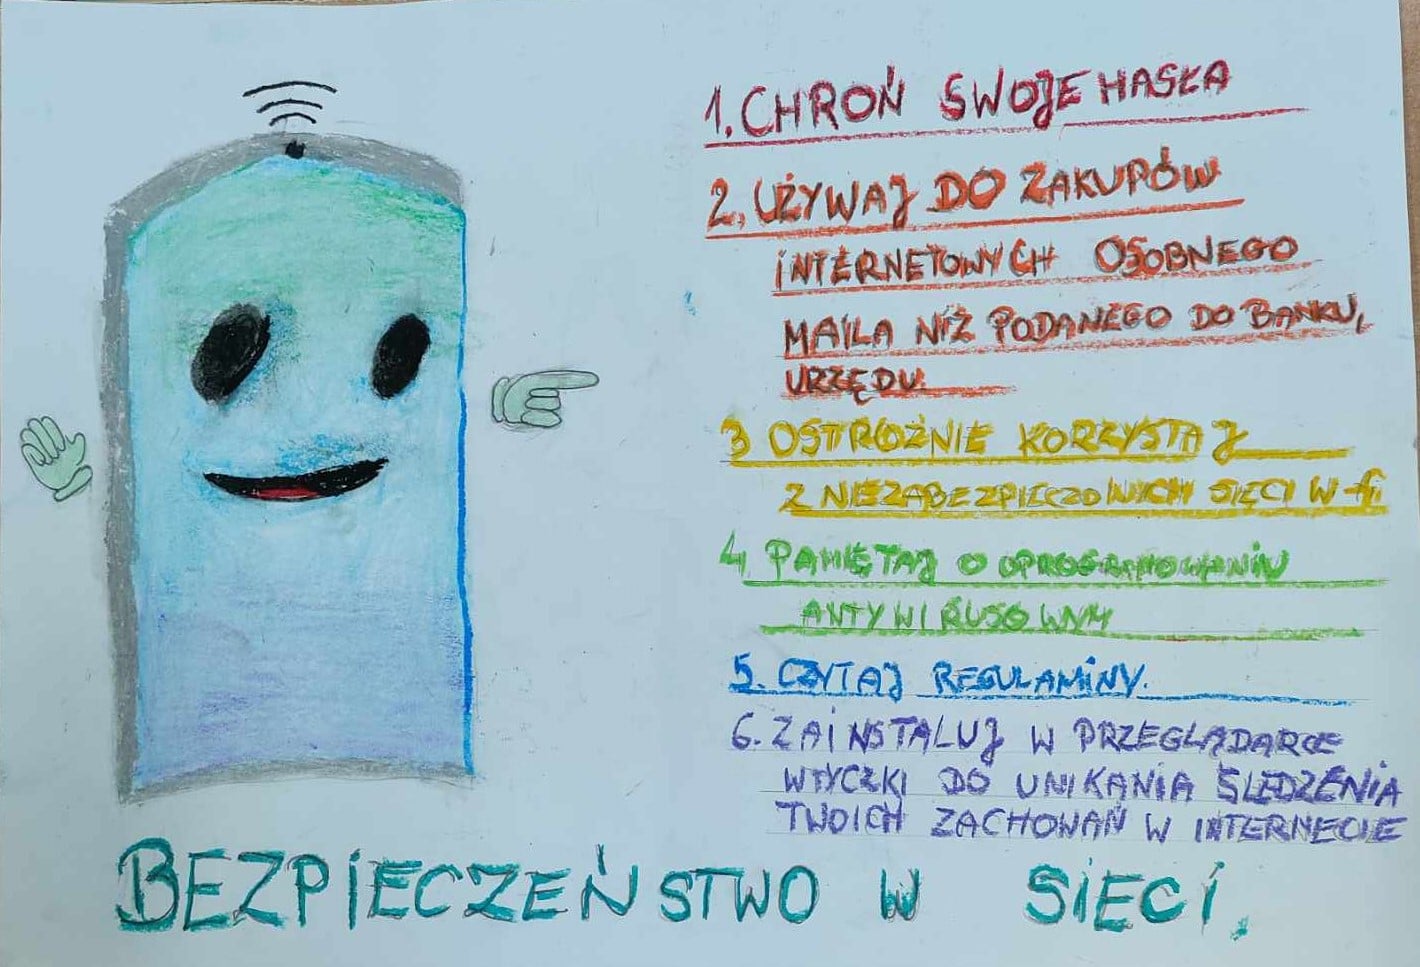 1. CHROŃ SWOJE HASŁA
2. UŻYWAJ DO ZAKUPÓW
INTERNETOWYCH OSOBNEGO
MAILA NIŻ PODANEGO DO BANKU,
URZĘDU.
3 OSTROŻNIE KORZYSTAJ
Z NIEZABEZPIECZONYCH SIĘCI W-fi
4 PAMIĘTAJ O OPROGRAMOWANIU
ANTYWIRUSOWYM
5. CZYTAJ REGULAMINY.
6. ZAINSTALUJ W PRZEGLĄDARCE
WTYCZKI DO UNIKANIA ŚLEDZENIA
TWOICH ZACHOWAŃ W INTERNECIE
BEZPIECZEŃSTWO W SIECI.